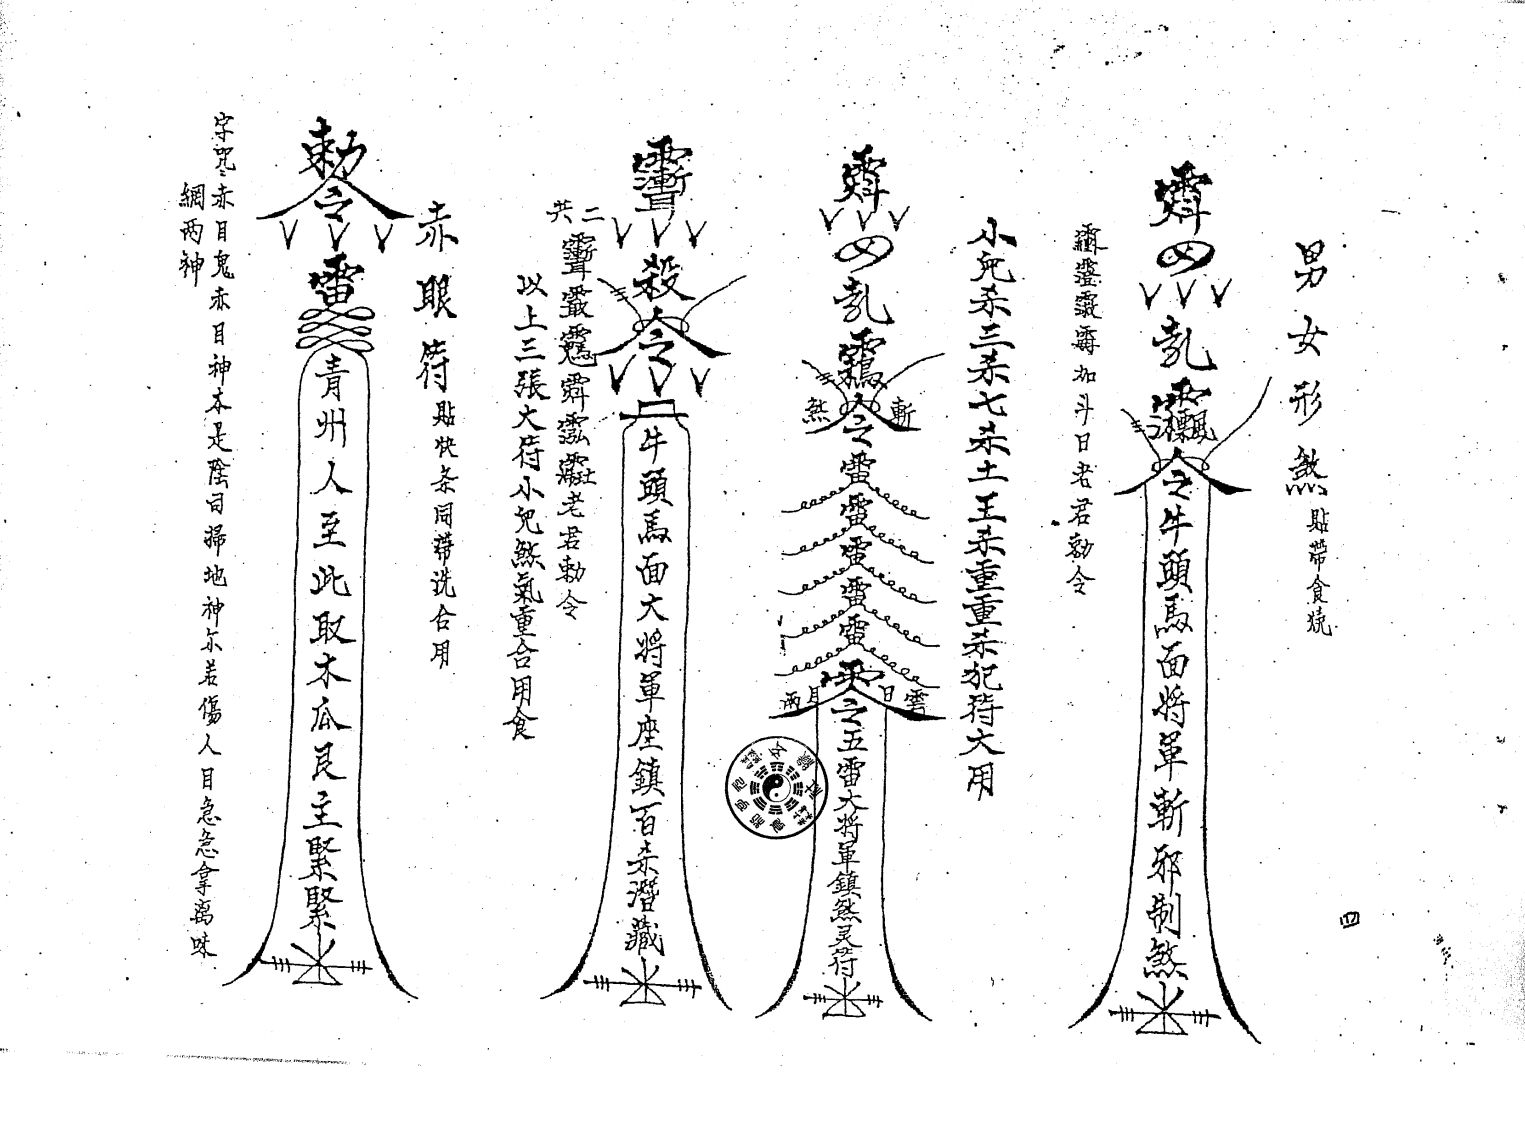 男女形煞
貼帶食燒
令牛頭馬面將軍斬邪制煞
加斗日老君勅令
小児杀三杀七杀土王杀重重杀犯符大用
斬
煞
令
雷雷雷雷雷
日
月
雨
令五雷大將軍鎮煞灵符
殺令
牛頭馬面大將軍座鎮百杀潛藏
共二
老君勅令
以上三張大符小児煞氣重合用食
赤眼符
貼快条同帶洗合用
勅令
雷
青州人至此取木瓜艮主緊緊
字咒赤目鬼赤目神本是陰司掃地神尓若傷人目急急拿离味
網两神
四